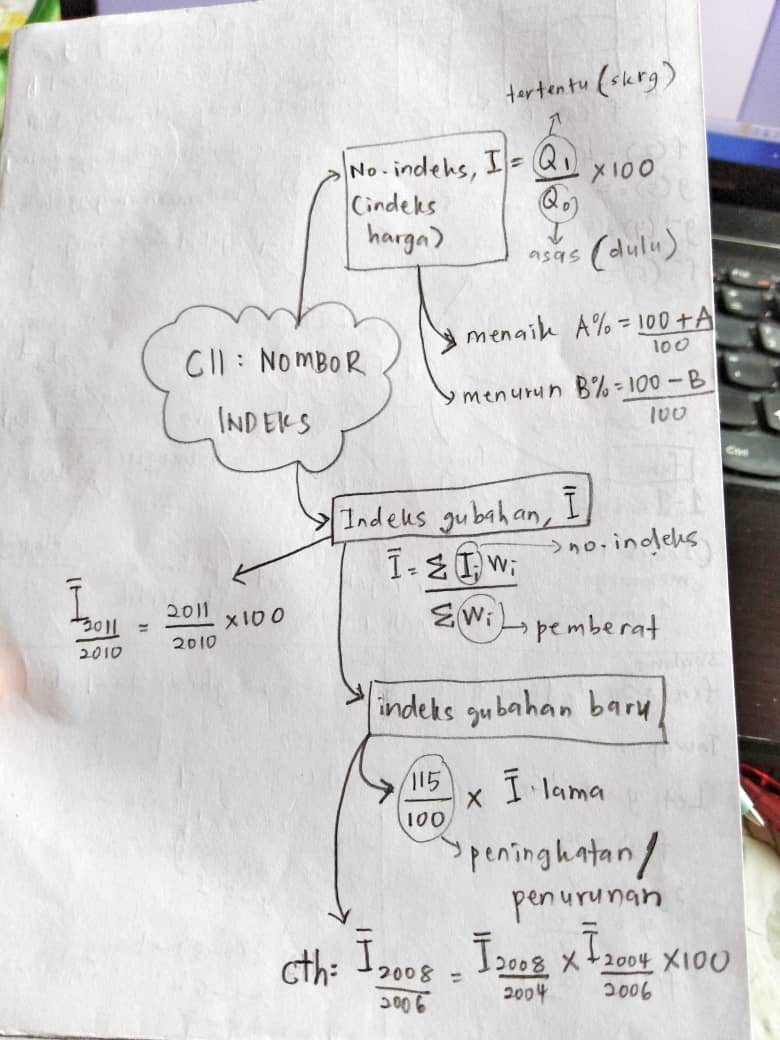 tertentu (skrg)
No. indeks, I = Q₁/Q₀ × 100
(indeks
harga)
asas (dulu)
menaik A% = 100 + A/100
menurun B% = 100 - B/100
C11 : NOMBOR
INDEKS
Indeks gubahan, Ī
Ī = Σ Iᵢ Wᵢ / Σ Wᵢ
no. indeks
pemberat
Ī 2011/2010 = 2011/2010 × 100
indeks gubahan baru
115/100 × Ī lama
peningkatan/
penurunan
cth: Ī 2008/2006 = Ī 2008/2004 × Ī 2004/2006 × 100
Ctrl